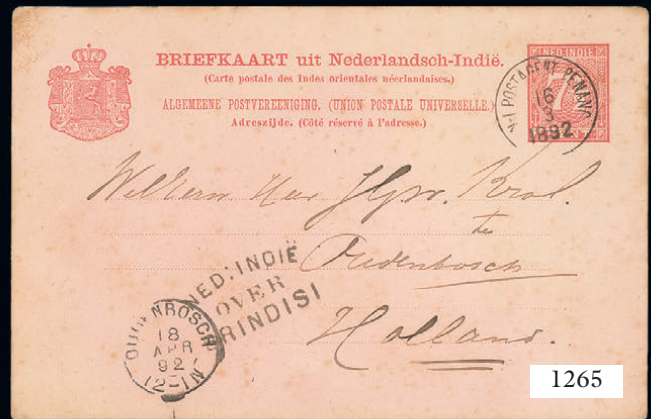 BRIEFKAART uit Nederlandsch-Indië.
(Carte postale des Indes orientales néerlandaises.)
ALGEMEENE POSTVEREENIGING. (UNION POSTALE UNIVERSELLE.)
Adreszijde. (Côté réservé à l'adresse.)
NED. INDIË
CENT
N-I POSTAGENT PENANG
16
3
1892
Krol.
te
Oudenbosch
Holland.
NED: INDIË
OVER
BRINDISI
OUDENBOSCH
18
APR
92
12-1N
1265